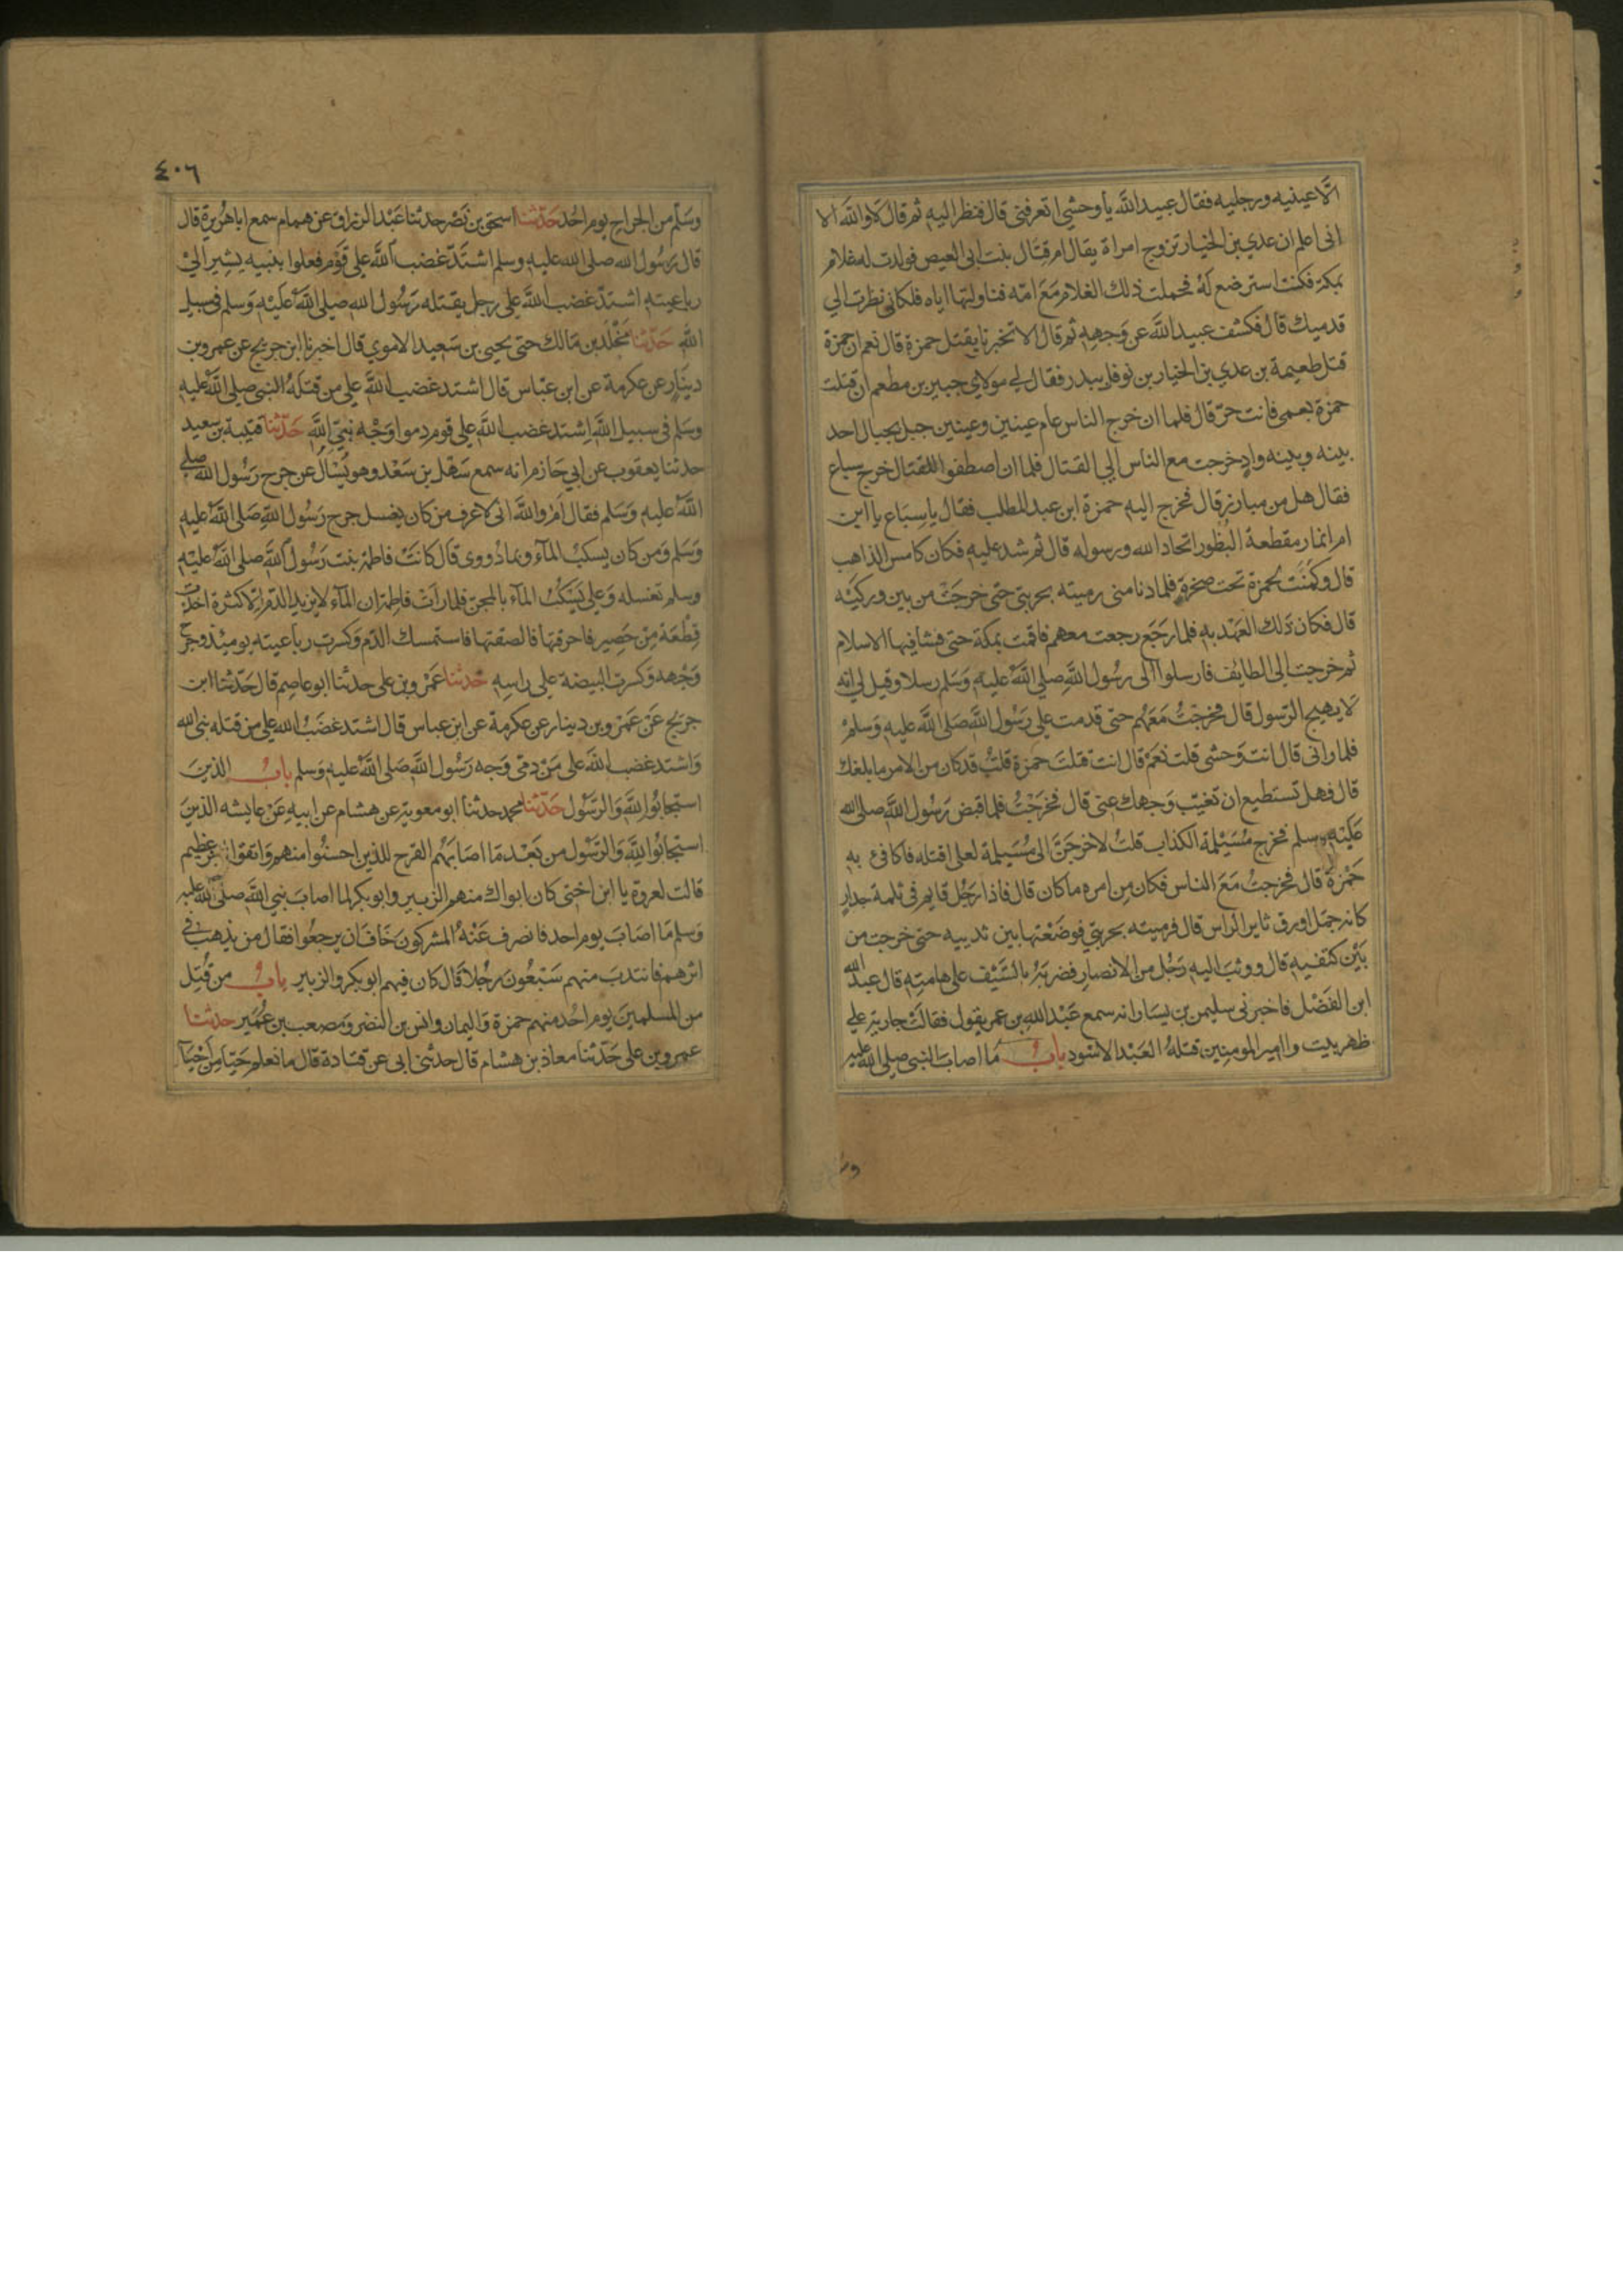 الا عينيه ورجليه فقال عبيد الله يا وحشي اتعرفني قال فنظر اليه ثم قال لا والله الا
اني اعلم ان عدي بن الخيار تزوج امراة يقال ام قتال بنت ابي العيص فولدت له غلام
بمكة فكنت استرضع له فحملت ذلك الغلام مع امه فناولتها اياه فلكاني نظرت الي
قدميك قال فكشف عبيد الله عن وجهه ثم قال الا تخبرنا بقتل حمزة قال نعم ان حمزة
قتل طعيمة بن عدي بن الخيار بن نوفل ببدر فقال لي مولاي جبير بن مطعم ان قتلت
حمزة بعمي فانت حر قال فلما ان خرج الناس عام عينين وعينين جبل بجبال احد
بينه وبينه واد خرجت مع الناس الي القتال فلما ان اصطفوا للقتال خرج سباع
فقال هل من مبارز قال فخرج اليه حمزة ابن عبد المطلب فقال يا سباع يا ابن
ام انمار مقطعة البظور اتحاد الله ورسوله قال ثم شد عليه فكان كامس الذاهب
قال وكمنت لحمزة تحت صخرة فلما دنا مني رميته بحربتي حتى خرجت من بين وركيه
قال فكان ذلك العهد به فلما رجع رجعت معهم فاقمت بمكة حتى فشا فيها الاسلام
ثم خرجت الى الطايف فارسلوا الى رسول الله صلى الله عليه وسلم رسلا وقيل لي انه
لا يهيج الرسول قال فخرجت معهم حتى قدمت علي رسول الله صلى الله عليه وسلم
فلما راني قال انت وحشي قلت نعم قال انت قتلت حمزة قلت قد كان من الامر ما بلغك
قال فهل تستطيع ان تغيب وجهك عني قال فخرجت فلما قبض رسول الله صلى الله
عليه وسلم فخرج مسيلمة الكذاب قلت لاخرجن الى مسيلمة لعلي اقتله فاكافئ به
حمزة قال فخرجت مع الناس فكان من امره ما كان قال فاذا رجل قايم في ثلمة جدار
كانه جمل اورق ثاير الراس قال فرميته بحربتي فوضعتها بين ثدييه حتى خرجت من
بين كتفيه قال ووثب اليه رجل من الانصار فضربه بالسيف على هامته قال عبد الله
ابن الفضل فاخبرني سليمن بن يسار انه سمع عبد الله بن عمر يقول فقالت جارية علي
ظهر بيت وا امير المومنين قتله العبد الاسود باب ما اصاب النبي صلى الله عليه
٤٠٦
وسلم من الجراح يوم احد حدثنا اسحق بن نصر حدثنا عبد الرزاق عن همام سمع ابا هريرة قال
قال رسول الله صلى الله عليه وسلم اشتد غضب الله على قوم فعلوا بنبيه يشير الى
رباعيته اشتد غضب الله على رجل يقتله رسول الله صلى الله عليه وسلم في سبيل
الله حدثنا مخلد بن مالك حتى يحيى بن سعيد الاموي قال اخبرنا ابن جريج عن عمرو بن
دينار عن عكرمة عن ابن عباس قال اشتد غضب الله على من قتله النبي صلى الله عليه
وسلم في سبيل الله اشتد غضب الله على قوم دموا وجه نبي الله حدثنا قتيبة بن سعيد
حدثنا يعقوب عن ابي حازم انه سمع سهل بن سعد وهو يسال عن جرح رسول الله صلى
الله عليه وسلم فقال ام والله اني لاعرف من كان يغسل جرح رسول الله صلى الله عليه
وسلم ومن كان يسكب المآء وبما ذووي قال كانت فاطمة بنت رسول الله صلى الله عليه
وسلم تغسله وعلي يسكب المآء بالمجن فلما رات فاطمة ان المآء لا يزيد الدم الا كثرة اخذت
قطعة من حصير فاحرقتها فالصقتها فاستمسك الدم وكسرت رباعيته يومئذ وجرح
وجهه وكسرت البيضة على راسه حدثنا عمرو بن علي حدثنا ابو عاصم قال حدثنا ابن
جريج عن عمرو بن دينار عن عكرمة عن ابن عباس قال اشتد غضب الله على من قتله نبي الله
واشتد غضب الله على من دمى وجه رسول الله صلى الله عليه وسلم باب الذين
استجابوا لله والرسول حدثنا محمد حدثنا ابو معوية عن هشام عن ابيه عن عايشه الذين
استجابوا لله والرسول من بعد ما اصابهم القرح للذين احسنوا منهم واتقوا اجر عظيم
قالت لعروة يا ابن اختي كان ابواك منهم الزبير وابو بكر لما اصاب نبي الله صلى الله عليه
وسلم ما اصاب يوم احد فانصرف عنه المشركون خاف ان يرجعوا فقال من يذهب في
اثرهم فانتدب منهم سبعون رجلا قال كان فيهم ابو بكر والزبير باب من قتل
من المسلمين يوم احد منهم حمزة واليمان وانس بن النضر ومصعب بن عمير حدثنا
عمرو بن علي حدثنا معاذ بن هشام قال حدثني ابي عن قتادة قال ما نعلم حيا من احيآ